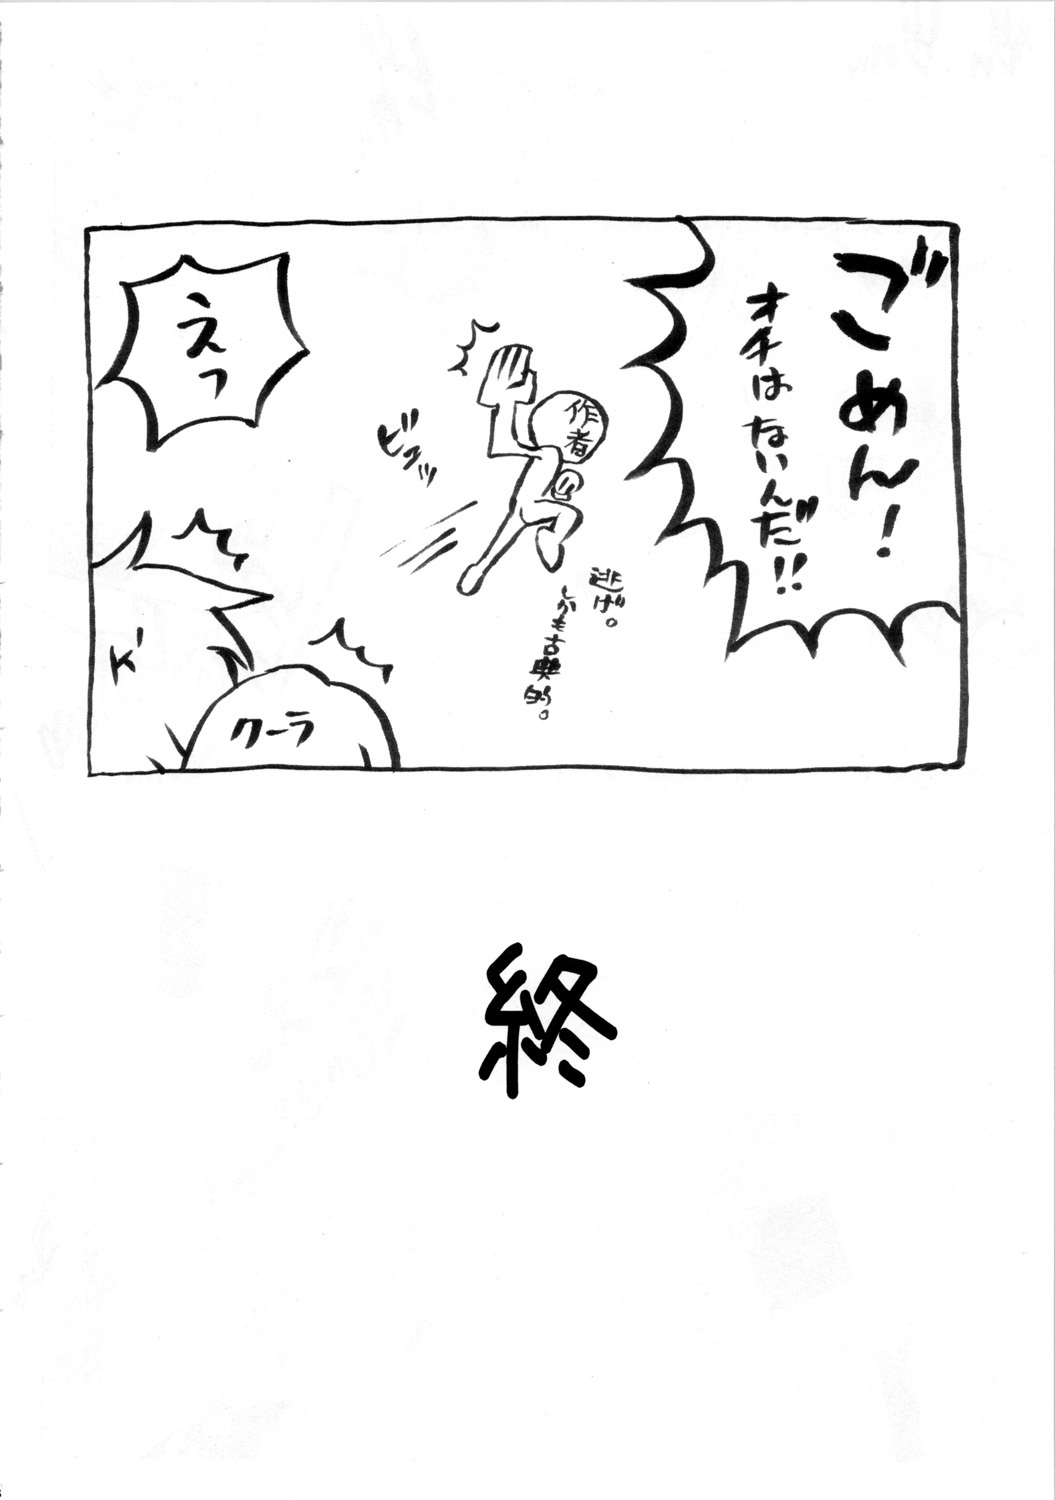 ごめん!
オチはないんだ!!
逃げ。
しかも古典的。
作者
ビュッ
えっ
K'
クーラ
終